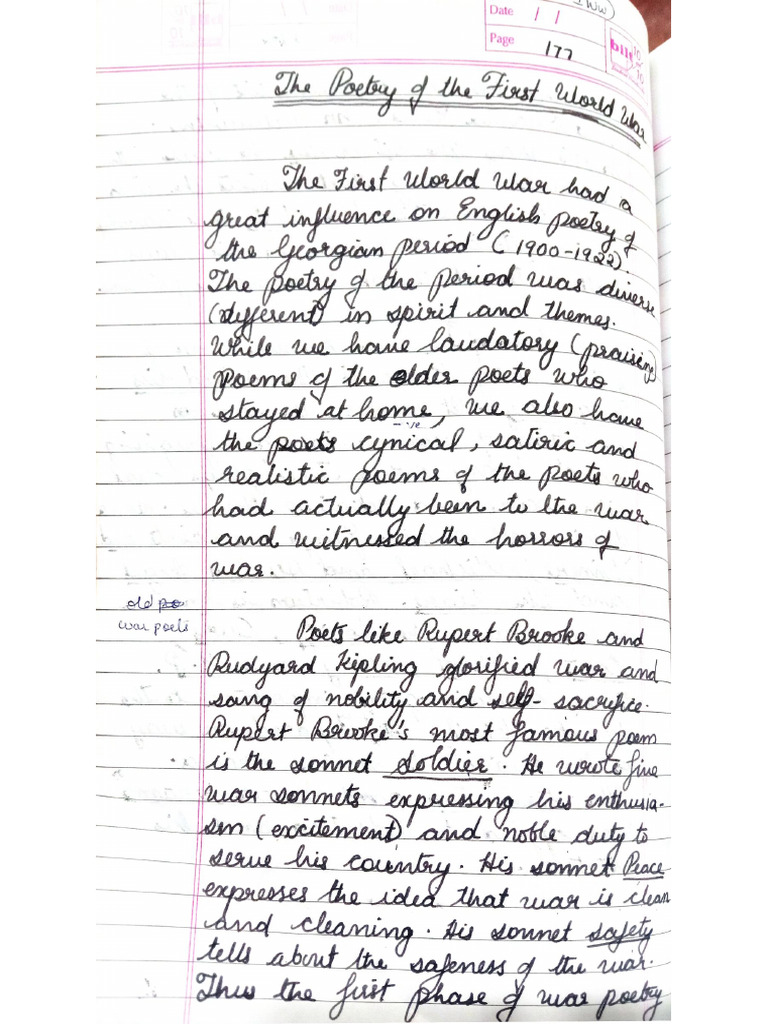 IWW
Date / /
Page 177
The Poetry of the First World War
The First World War had a
great influence on English poetry of
the Georgian period (1900-1922).
The poetry of the period was diverse
(different) in spirit and themes.
While we have laudatory (praising)
poems of the older poets who
stayed at home, we also have
-ive
the poets cynical, satiric and
realistic poems of the poets who
had actually been to the war
and witnessed the horrors of
war.
old po
war poets
Poets like Rupert Brooke and
Rudyard Kipling glorified war and
sang of nobility and self-sacrifice.
Rupert Brooke's most famous poem
is the sonnet Soldier. He wrote five
war sonnets expressing his enthusia-
sm (excitement) and noble duty to
serve his country. His sonnet Peace
expresses the idea that war is clean
and cleaning. His sonnet safety
tells about the safeness of the war.
Thus the first phase of war poetry